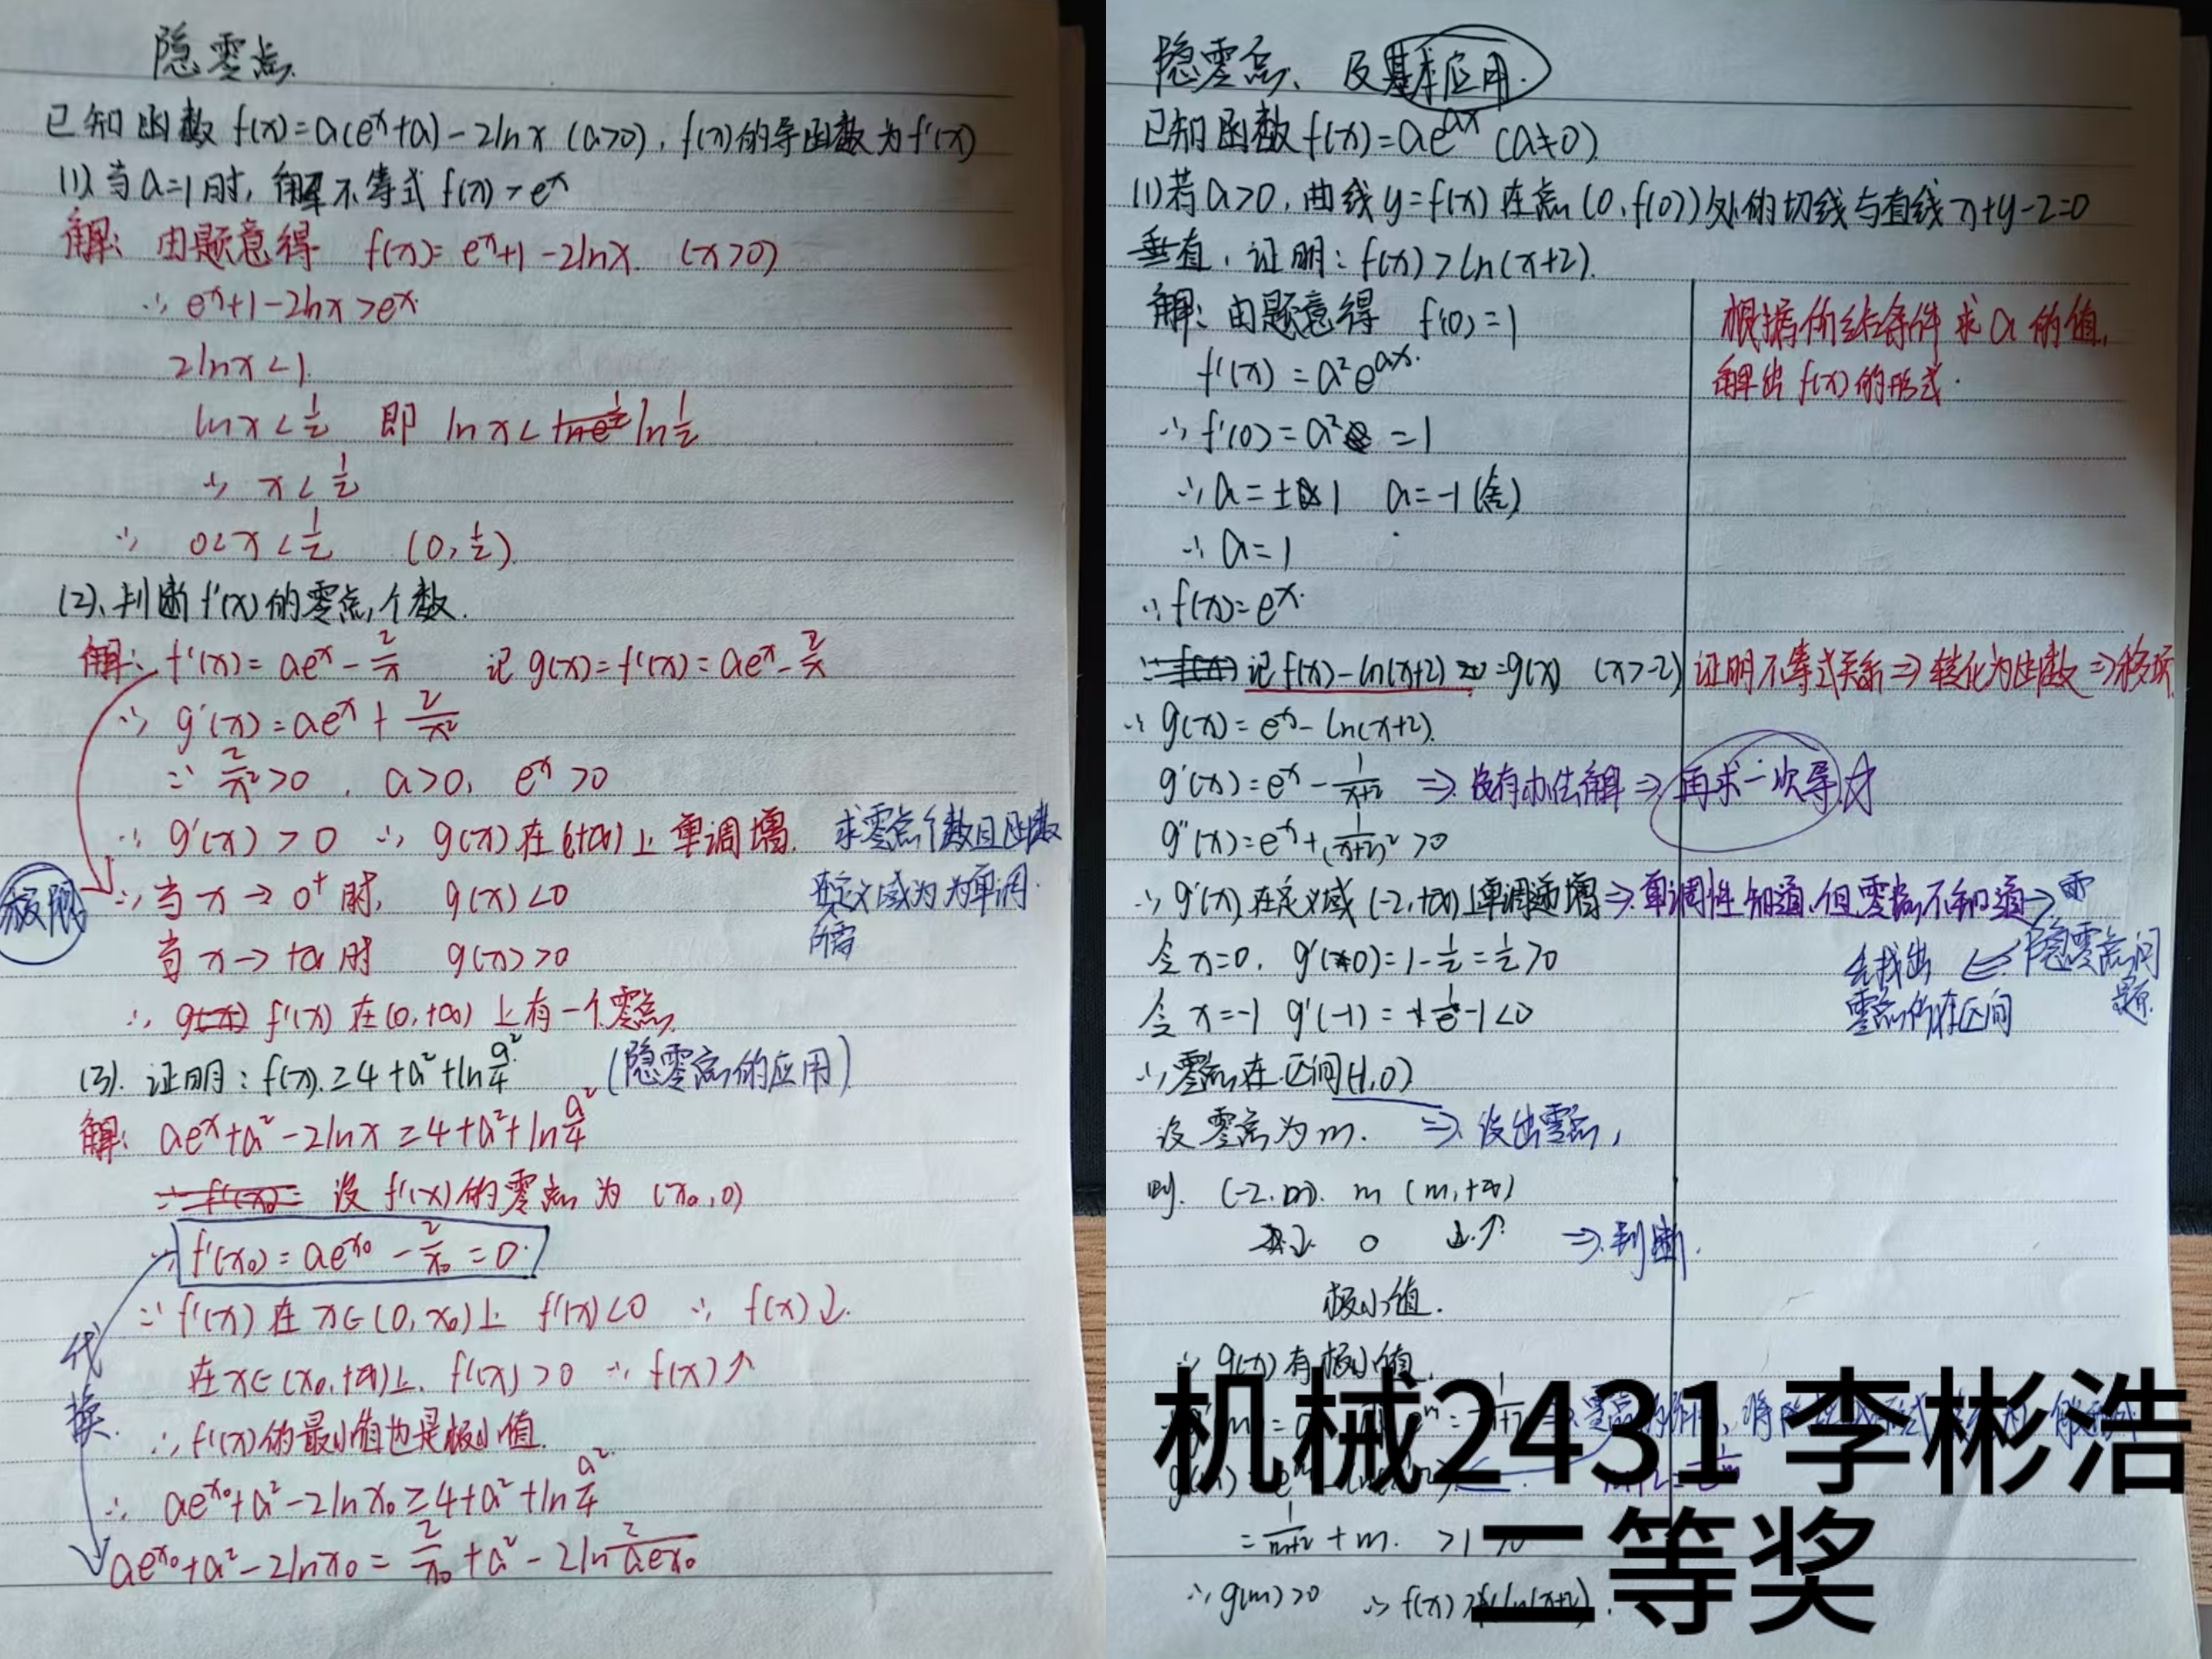 隐零点
已知函数 f(x)=a(e^x+a)-2lnx (a>0), f(x)的导函数为f'(x)
(1)当a=1时, 解不等式 f(x)>e^x
解: 由题意得 f(x)=e^x+1-2lnx. (x>0)
∴ e^x+1-2lnx>e^x
2lnx<1
lnx<1/2 即 lnx< ln1/2
∴ x<1/2
∴ 0<x<1/2 (0,1/2)
(2). 判断f'(x)的零点个数.
解: f'(x)=ae^x-2/x 记g(x)=f'(x)=ae^x-2/x
∴ g'(x)=ae^x+2/x²
∵ 2/x²>0, a>0, e^x>0
∴ g'(x)>0 ∴ g(x)在(+∞)上单调增. 求零点个数且函数
极限 ∵ 当x→0⁺时, g(x)<0 在定义域为为单调.
当x→+∞时 g(x)>0 所需
∴ f'(x)在(0,+∞)上有一个零点.
(3). 证明: f(x)≥4+a²+ln a²/4 (隐零点的应用)
解: ae^x+a²-2lnx≥4+a²+ln a²/4
设f'(x)的零点为(x₀,0)
∴ f'(x₀)=ae^x₀-2/x₀=0.
∵ f'(x)在x∈(0,x₀)上 f'(x)<0 ∴ f(x)↓.
在x∈(x₀,+∞)上. f'(x)>0 ∴ f(x)↑
代换. ∴ f'(x)的最小值也是极小值.
∴ ae^x₀+a²-2lnx₀≥4+a²+ln a²/4
ae^x₀+a²-2lnx₀=2/x₀+a²-2ln 2/ae^x₀
隐零点、及基本应用.
已知函数f(x)=ae^ax (a≠0)
(1)若a>0, 曲线y=f(x)在点(0,f(0))处的切线与直线x+y-2=0
垂直, 证明: f(x)>ln(x+2).
解: 由题意得 f'(0)=1
f'(x)=a²e^ax.
∴ f'(0)=a²=1
∴ a=±1 a=-1(舍)
∴ a=1
∴ f(x)=e^x.
根据所给条件求a的值,
解出f(x)的形式.
记f(x)-ln(x+2)=g(x) (x>-2) 证明不等式关系⇒转化为函数⇒移项
∴ g(x)=e^x-ln(x+2).
g'(x)=e^x-1/(x+2) ⇒没有办法解⇒再求一次导☆
g''(x)=e^x+1/(x+2)²>0
∴ g'(x)在定义域(-2,+∞)上单调递增⇒单调性知道,但零点不知道⇒
令x=0, g'(0)=1-1/2=1/2>0 去找出 ⇐ 隐零点问题.
令x=-1 g'(-1)=1/e-1<0 零点所在区间
∴ 零点在区间(-1,0)
设零点为m. ⇒ 设出零点,
则. (-2,m). m (m,+∞)
↓ 0 ↑ ⇒判断.
极小值.
∴ g(x)有极小值.
=1/(m+2)+m. >1 >0
∴ g(m)>0 ∴ f(x)>ln(x+2).
机械2431 李彬浩
二等奖